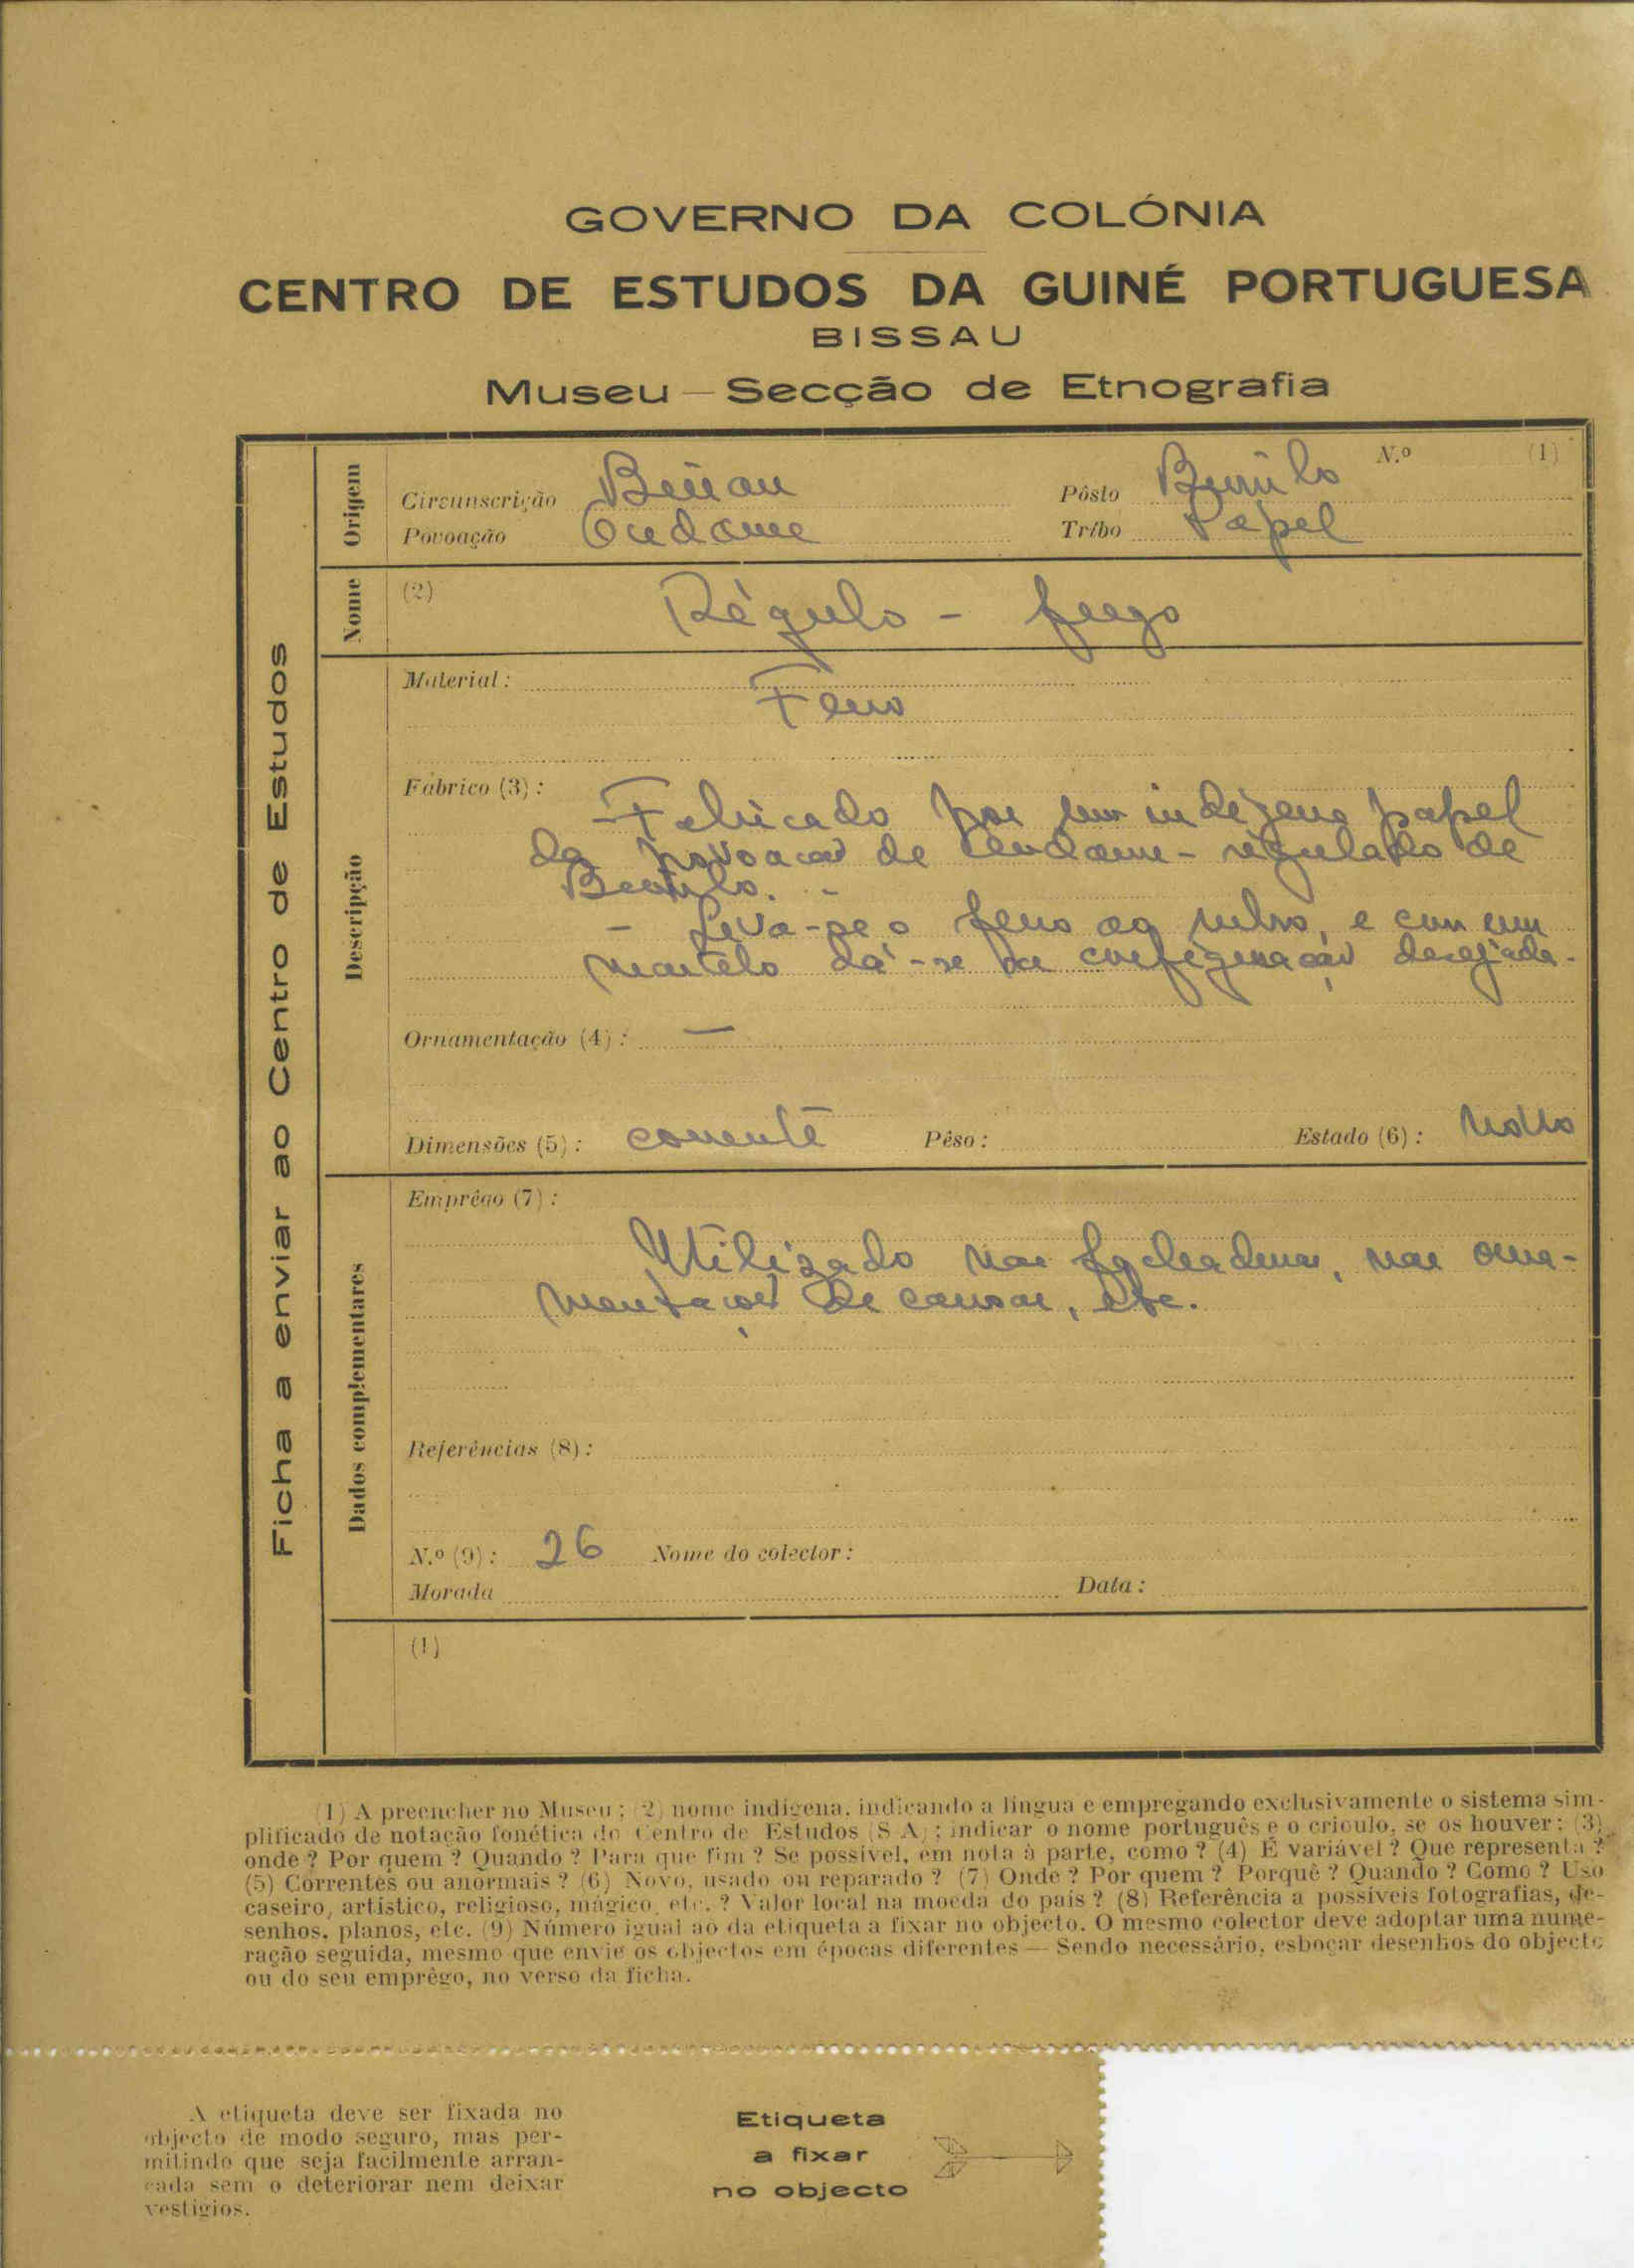 GOVERNO DA COLÓNIA
CENTRO DE ESTUDOS DA GUINÉ PORTUGUESA
BISSAU
Museu — Secção de Etnografia
Ficha a enviar ao Centro de Estudos
Origem
Circunscrição Bissau Pôsto N.º (1)
Povoação Tríbo Papel
Nome
(2) Régulo -
Descripção
Material:
Ferro
Fabrico (3):
Fabricado por um indígena papel
da povoação de - regulado de
- Leva-se o ferro ao rubro, e com um
martelo dá-se a configuração desejada.
Ornamentação (4): —
Dimensões (5): corrente Pêso: Estado (6): novo
Dados complementares
Emprêgo (7):
Utilizado nas fechaduras, nas orna-
mentações de camas, etc.
Referências (8):
N.º (9): 26 Nome do colector:
Morada Data:
(1)
(1) A preencher no Museu; (2) nome indígena, indicando a língua e empregando exclusivamente o sistema sim-
plificado de notação fonética do Centro de Estudos (S A); indicar o nome português e o crioulo, se os houver; (3)
onde? Por quem? Quando? Para que fim? Se possível, em nota à parte, como? (4) É variável? Que representa?
(5) Correntes ou anormais? (6) Novo, usado ou reparado? (7) Onde? Por quem? Porquê? Quando? Como? Uso
caseiro, artístico, religioso, mágico, etc.? Valor local na moeda do país? (8) Referência a possíveis fotografias, de-
senhos, planos, etc. (9) Número igual ao da etiqueta a fixar no objecto. O mesmo colector deve adoptar uma nume-
ração seguida, mesmo que envie os objectos em épocas diferentes — Sendo necessário, esboçar desenhos do objecto
ou do seu emprêgo, no verso da ficha.
A etiqueta deve ser fixada no
objecto de modo seguro, mas per-
mitindo que seja facilmente arran-
cada sem o deteriorar nem deixar
vestígios.
Etiqueta
a fixar
no objecto